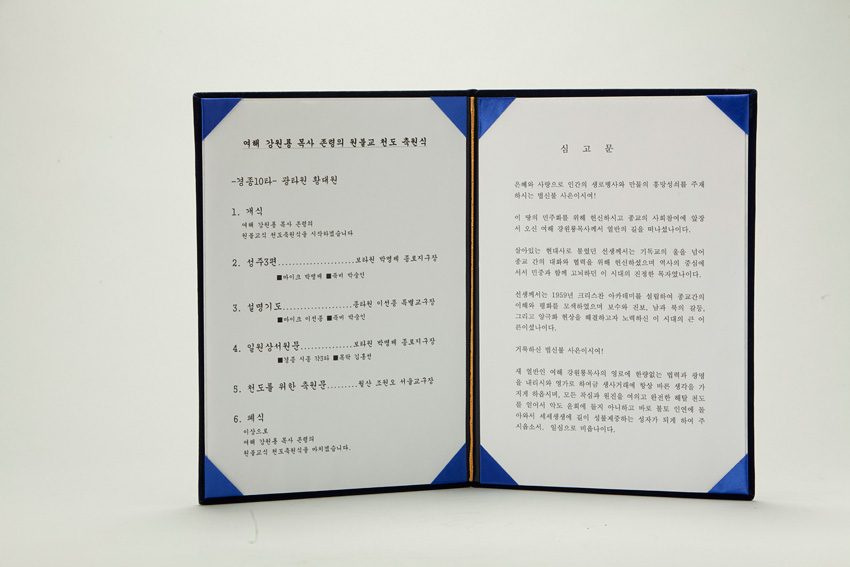 여해 강원룡 목사 존령의 원불교 천도 축원식
-경종10타- 광타원 황대원
1. 개식
여해 강원룡 목사 존령의
원불교식 천도축원식을 시작하겠습니다
2. 성주3편......................보타원 박명제 종로지구장
■마이크 박명제 ■죽비 박숭인
3. 설명기도....................종타원 이선종 특별교구장
■마이크 이선종 ■죽비 박숭인
4. 일원상서원문...............보타원 박명제 종로지구장
■경종 시종 각3타 ■목탁 김홍선
5. 천도를 위한 축원문.........월산 조원오 서울교구장
6. 폐식
이상으로
여해 강원룡 목사 존령의
원불교식 천도축원식을 마치겠습니다.
심 고 문
은혜와 사랑으로 인간의 생로병사와 만물의 흥망성쇠를 주재
하시는 법신불 사은이시여!
이 땅의 민주화를 위해 헌신하시고 종교의 사회참여에 앞장
서 오신 여해 강원룡목사께서 열반의 길을 떠나셨나이다.
살아있는 현대사로 불렸던 선생께서는 기독교의 울을 넘어
종교 간의 대화와 협력을 위해 헌신하셨으며 역사의 중심에
서서 민중과 함께 고뇌하던 이 시대의 진정한 목자였나이다.
선생께서는 1959년 크리스찬 아카데미를 설립하여 종교간의
이해와 평화를 모색하였으며 보수와 진보, 남과 북의 갈등,
그리고 양극화 현상을 해결하고자 노력하신 이 시대의 큰 어
른이셨나이다.
거룩하신 법신불 사은이시여!
새 열반인 여해 강원룡목사의 영로에 한량없는 법력과 광명
을 내리시와 영가로 하여금 생사거래에 항상 바른 생각을 가
지게 하옵시며, 모든 착심과 원진을 여의고 완전한 해탈 천도
를 얻어서 악도 윤회에 들지 아니하고 바로 불토 인연에 돌
아와서 세세생생에 길이 성불제중하는 성자가 되게 하여 주
시옵소서. 일심으로 비옵나이다.